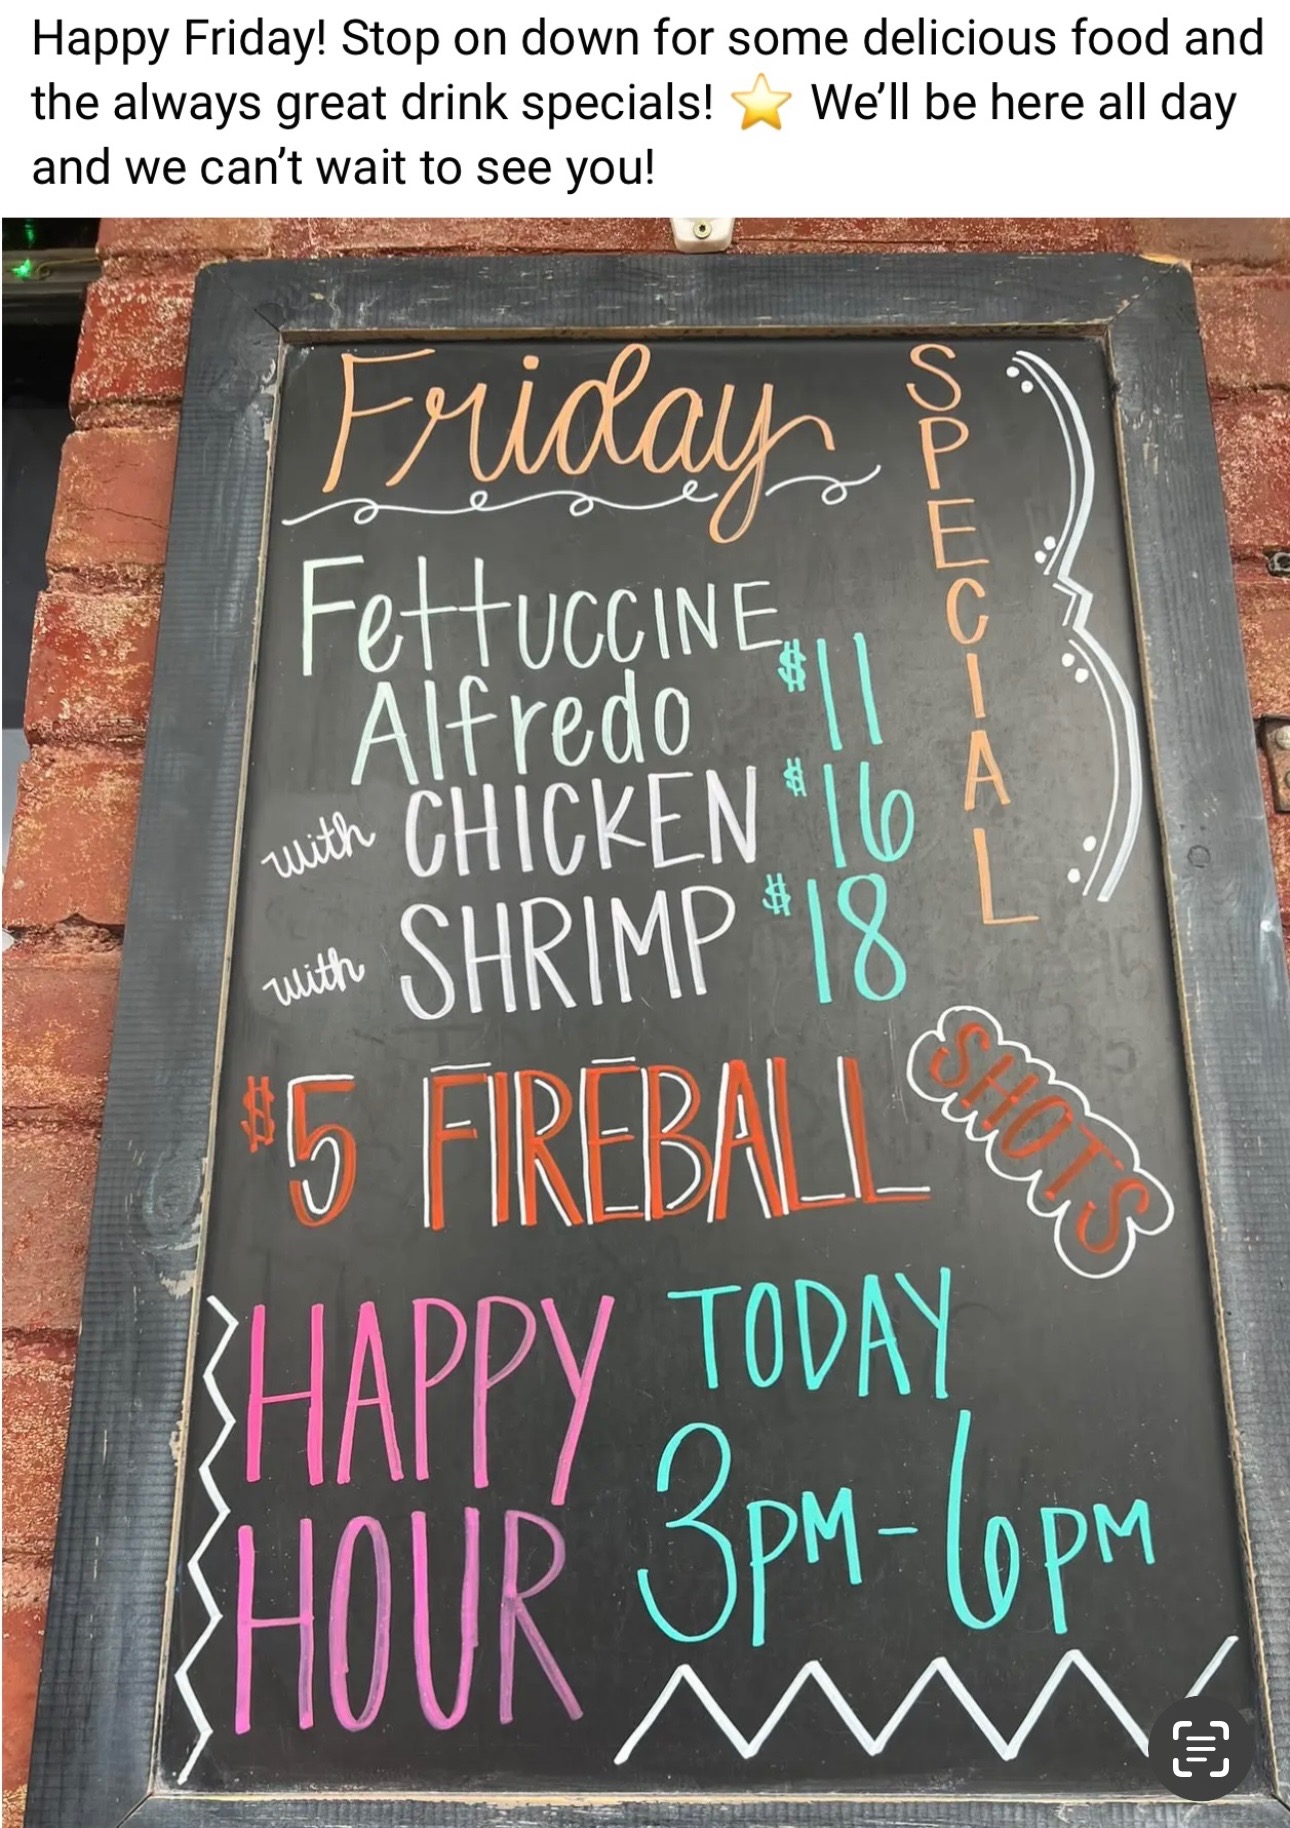 Happy Friday! Stop on down for some delicious food and
the always great drink specials! ⭐ We’ll be here all day
and we can’t wait to see you!
Friday
SPECIAL
FettUCCINE
Alfredo $11
with CHICKEN $16
with SHRIMP $18
$5 FIREBALL SHOTS
HAPPY
HOUR
TODAY
3PM-6PM